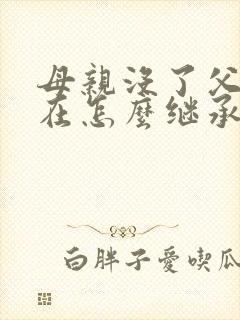 母親沒了父
在怎麼继承
白胖子愛喫瓜